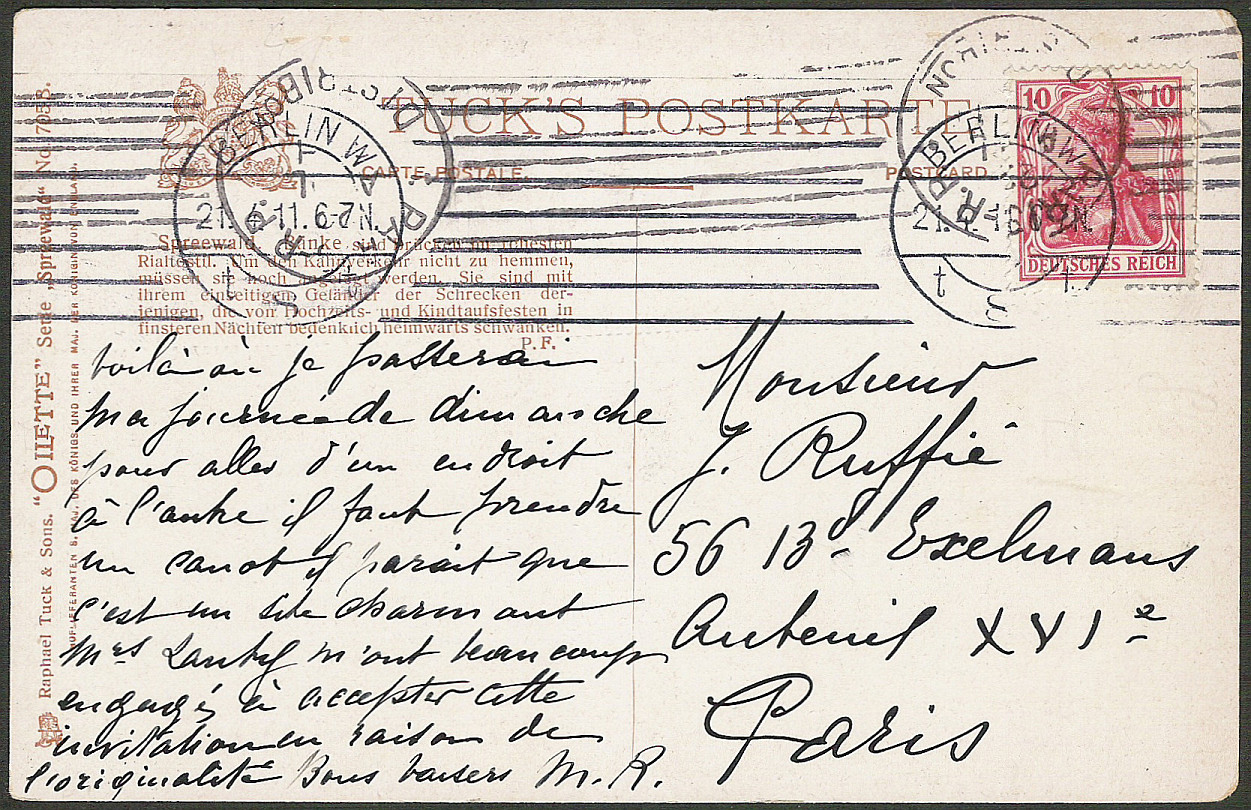 TUCK'S POSTKARTE
CARTE POSTALE.
POSTCARD.
Raphael Tuck & Sons. "OILETTE" Serie „Spreewald“ No. 705 B.
HOFLIEFERANTEN S. MAJ. DES KÖNIGS UND IHRER MAJ. DER KÖNIGIN VON ENGLAND.
BERLIN W
21.6.11.6-7N.
PARIS
DISTRIBON
BERLIN W
10 10
DEUTSCHES REICH
Spreewald. sind Brücken im reinsten
Rialtostil. Um den Kahnverkehr nicht zu hemmen,
müssen sie hoch angelegt werden. Sie sind mit
ihrem einseitigen Geländer der Schrecken der-
jenigen, die von Hochzeits- und Kindtaufsfesten in
finsteren Nächten bedenklich heimwärts schwanken.
P. F.
voilà où je passerai
ma journée de dimanche
pour aller d'un endroit
à l'autre il faut prendre
un canot il parait que
c'est un site charmant
Mrs m'ont beaucoup
engagés à accepter cette
invitation en raison de
l'originalité Bons baisers M. R.
Monsieur
J. Ruffié
56 Bd. Exelmans
Auteuil XVIe
Paris